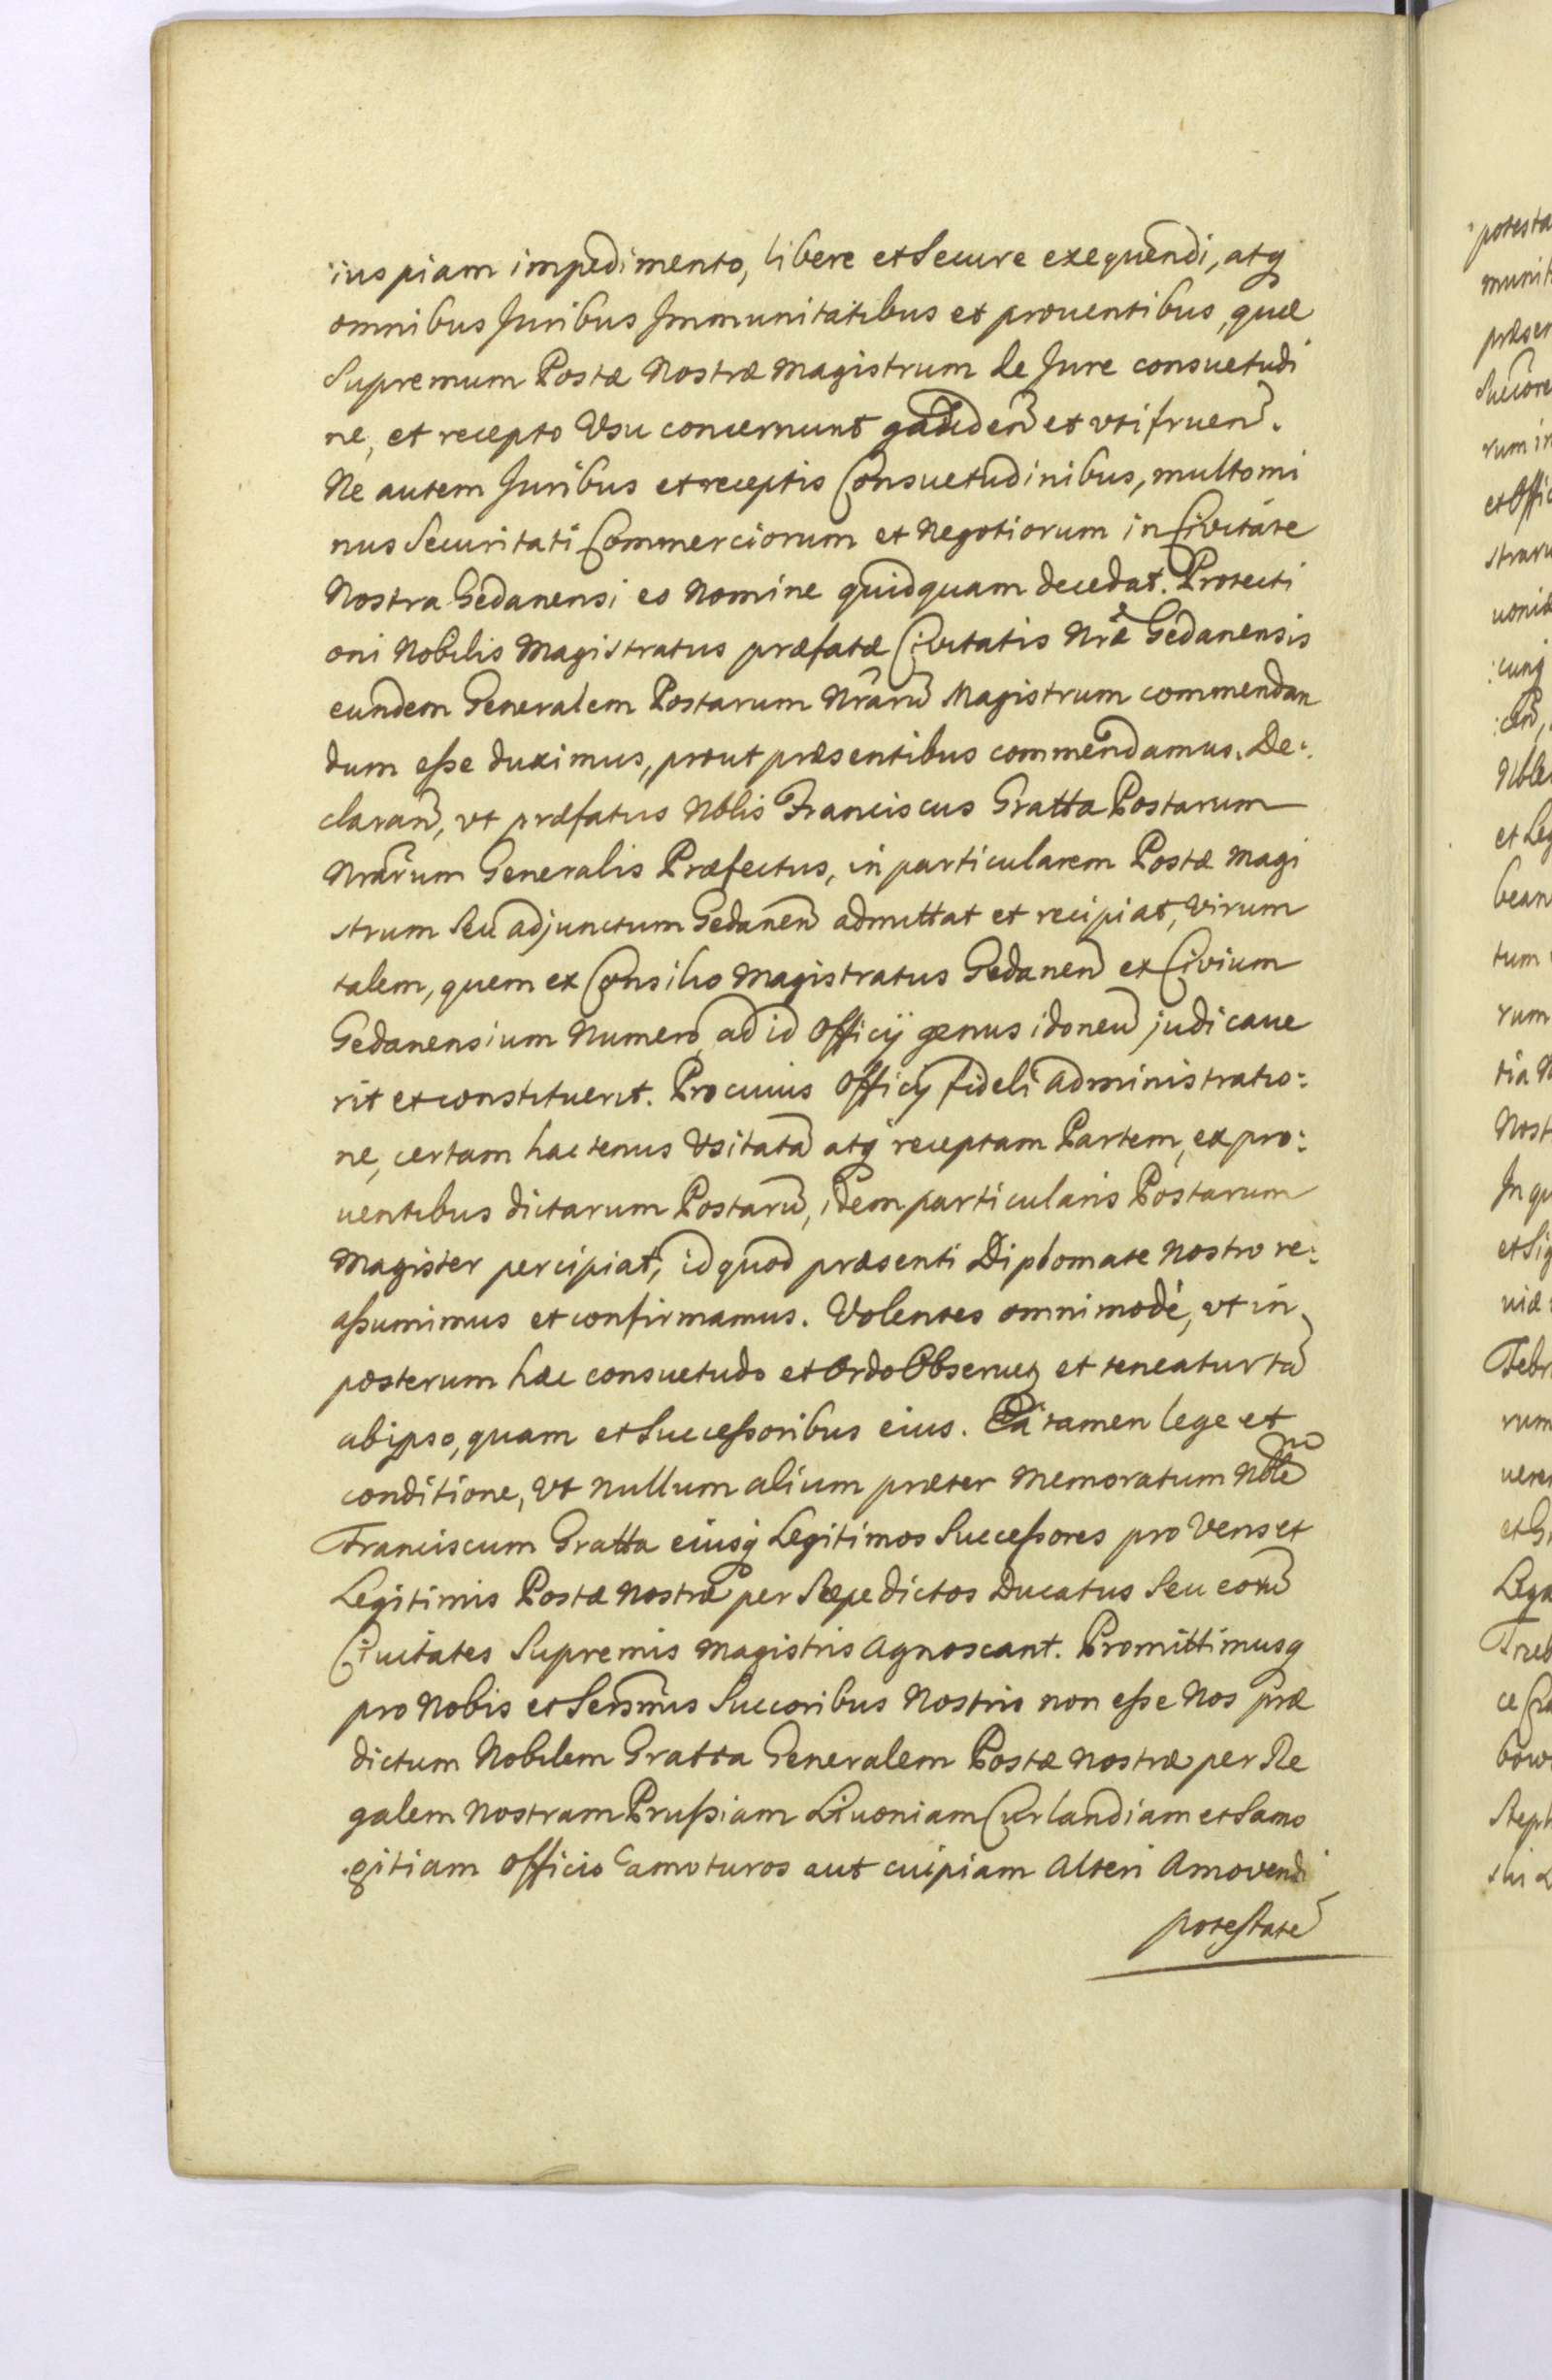 iuspiam impedimento, libere et Secure exequendi, atq
omnibus Juribus Immunitatibus et prouentibus, quæ
Supremum Postæ Nostræ Magistrum de Jure consuetudi
ne, et recepto Usu concernunt gauden̄ et vti fruen̄.
Ne autem Juribus et receptis Consuetudinibus, multo mi
nus Securitati Commerciorum et Negotiorum in Civitate
Nostra Gedanensi eo Nomine quidquam decedat. Protecti
oni Nobilis Magistratus præfatæ Civitatis Nræ Gedanensis
eundem Generalem Postarum Nrarū Magistrum commendan
dum eſse duximus, prout præsentibus commendamus. De:
claran̄, vt præfatus Nblis Franciscus Gratta Postarum
Nrarum Generalis Præfectus, in particularem Postæ Magi
strum Seu adjunctum Gedanen̄ admittat et recipiat, Virum
talem, quem ex Consilio Magistratus Gedanen̄ et Civium
Gedanensium Numero, ad id Officij genus idoneū judicaue
rit et constituerit. Pro cuius Officij fideli administratio:
ne, certam hactenus Usitatā atq receptam Partem, ex pro:
uentibus dictarum Postarū, idem particularis Postarum
Magister percipiat, id quod præsenti Diplomate Nostro re:
aſsumimus et confirmamus. Volentes omnimodè, vt in
posterum hæc consuetudo et Ordo Obseruetꝫ et teneatur tā
ab ipso, quam et Succeſsoribus eius. Eâ tamen lege et
conditione, Ut Nullum alium præter Memoratum Nblē
Franciscum Gratta eiusq Legitimos Succeſsores pro Veris et
Legitimis Postæ Nostræ per Sæpe dictos Ducatus Seu eorū
Ciuitates Supremis Magistris Agnoscant. Promittimusq
pro Nobis et Sersm̄is Succoribus Nostris non eſse Nos præ
dictum Nobilem Gratta Generalem Postæ Nostræ per Re
galem Nostram Pruſsiam Liuoniam Curlandiam et Samo
gitiam Officio amoturos aut cuipiam Alteri Amovendi
poteſtatē

potesta
munit
præsen
Succore
rum in
et Offic
straru
uonia
cunq
Noble
et Leg
bean
tum
rum
tia N
Nost
In qu
et Sig
uiæ
Febr
rum
uere
et G
Lega
Treb
ce Cra
bow
Steph